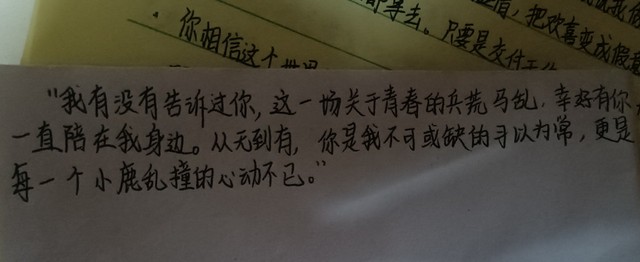 你相信这个世界
“我有没有告诉过你，这一场关于青春的兵荒马乱，幸好有你
一直陪在我身边。从无到有，你是我不可或缺的习以为常，更是
每一个小鹿乱撞的心动不已。”